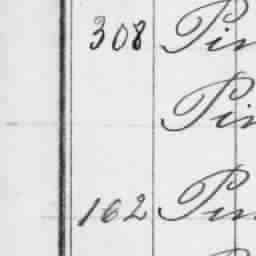 308 Pin
Pin
162 Pin